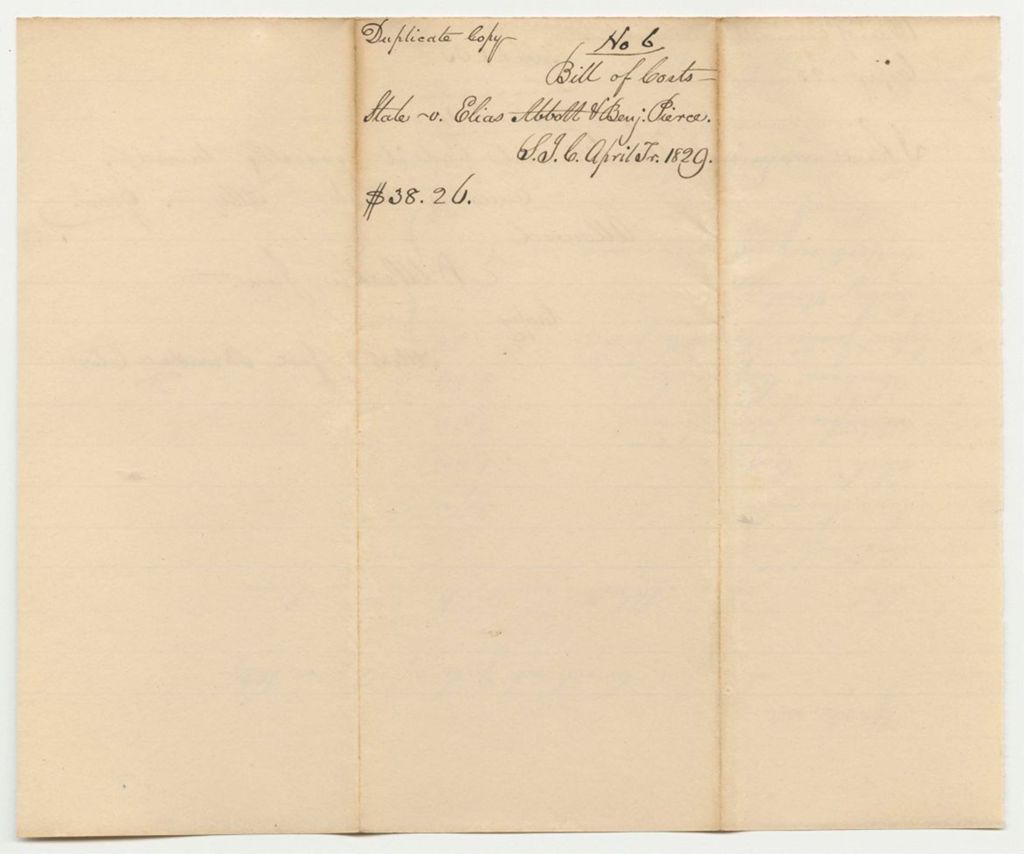 Duplicate Copy
No 6
Bill of Costs
State v. Elias Abbott & Benj. Pierce.
S. J. C. April Tr. 1829.
$38.26.